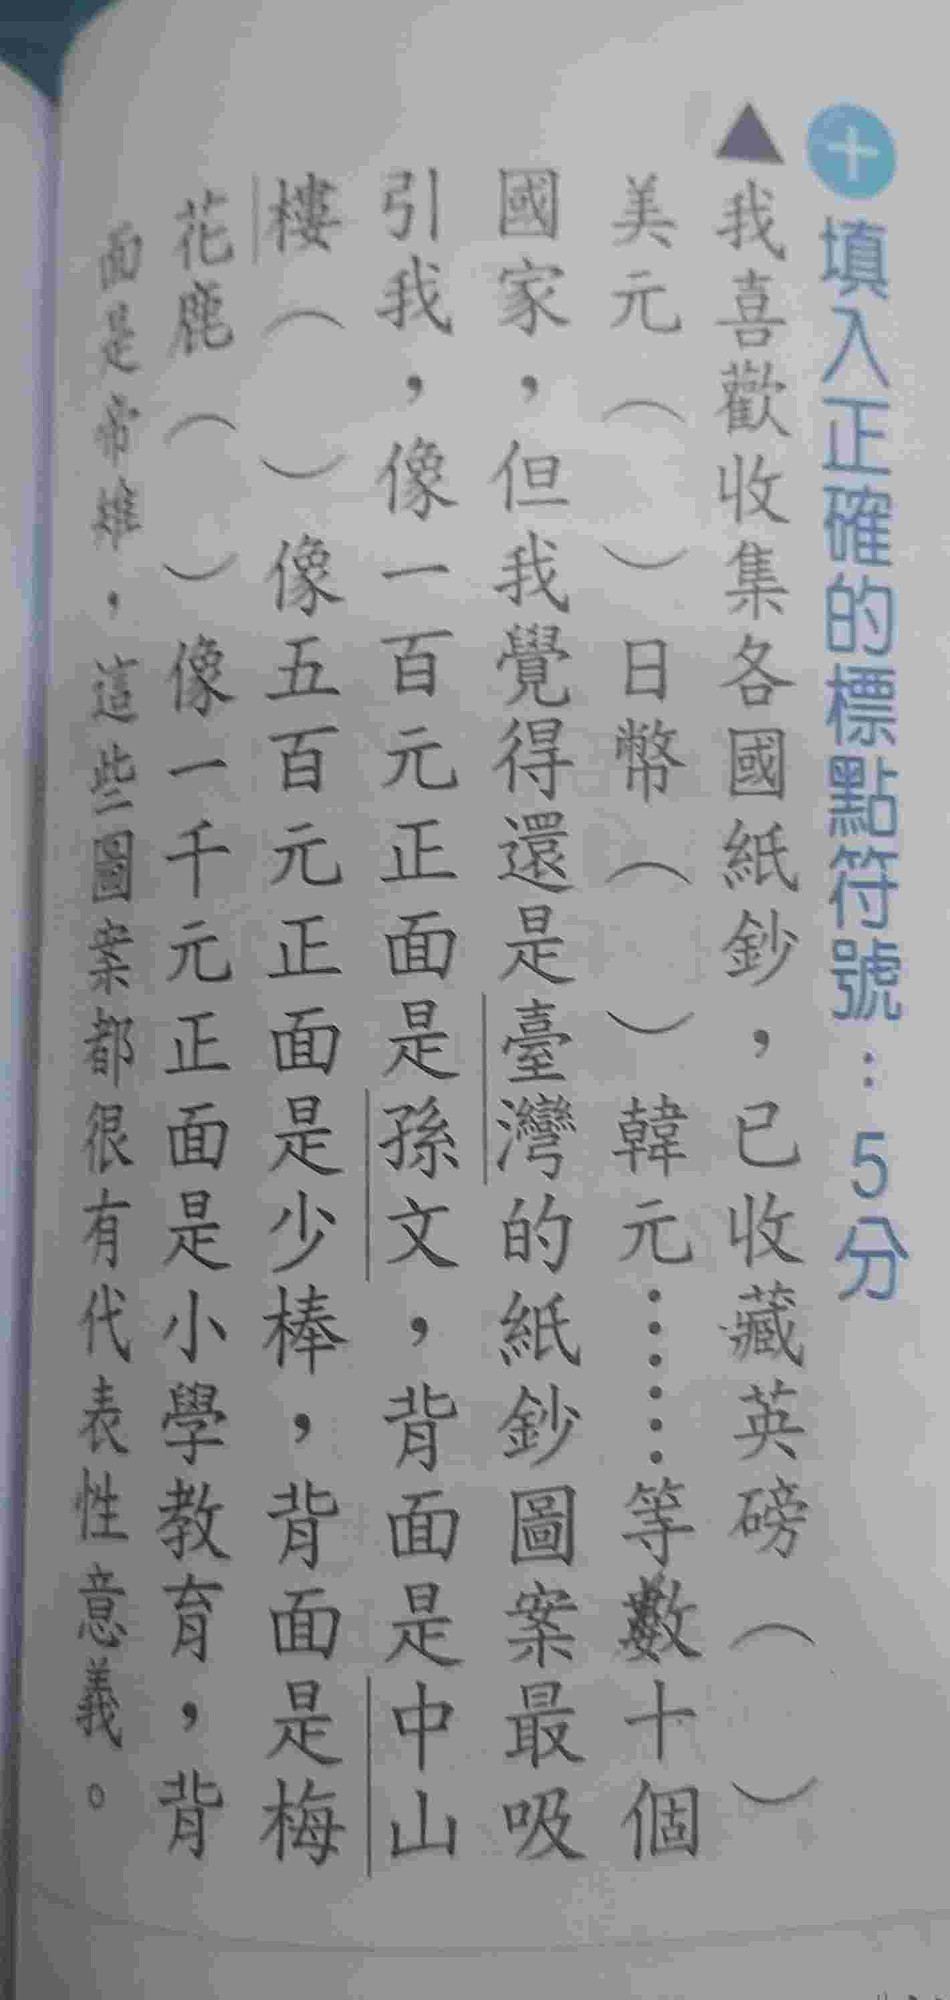 十 填入正確的標點符號：5分
▲我喜歡收集各國紙鈔，已收藏英磅（　）
美元（　）日幣（　）韓元……等數十個
國家，但我覺得還是臺灣的紙鈔圖案最吸
引我，像一百元正面是孫文，背面是中山
樓（　）像五百元正面是少棒，背面是梅
花鹿（　）像一千元正面是小學教育，背
面是帝雉，這些圖案都很有代表性意義。